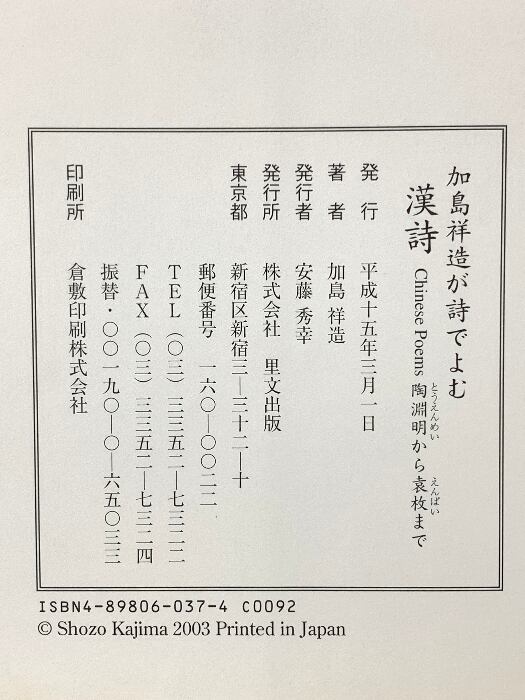 加島祥造が詩でよむ
漢詩 Chinese Poems 陶淵明から袁枚まで
とうえんめい えんばい
発行 平成十五年三月一日
著者 加島祥造
発行者 安藤秀幸
発行所 株式会社 里文出版
東京都 新宿区新宿三―三十二―十
郵便番号 一六〇―〇〇二二
TEL（〇三）三三五二―七三二二
FAX（〇三）三三五二―七三二四
振替・〇〇一九〇―〇―六五〇三三
印刷所 倉敷印刷株式会社
ISBN4-89806-037-4 C0092
© Shozo Kajima 2003 Printed in Japan